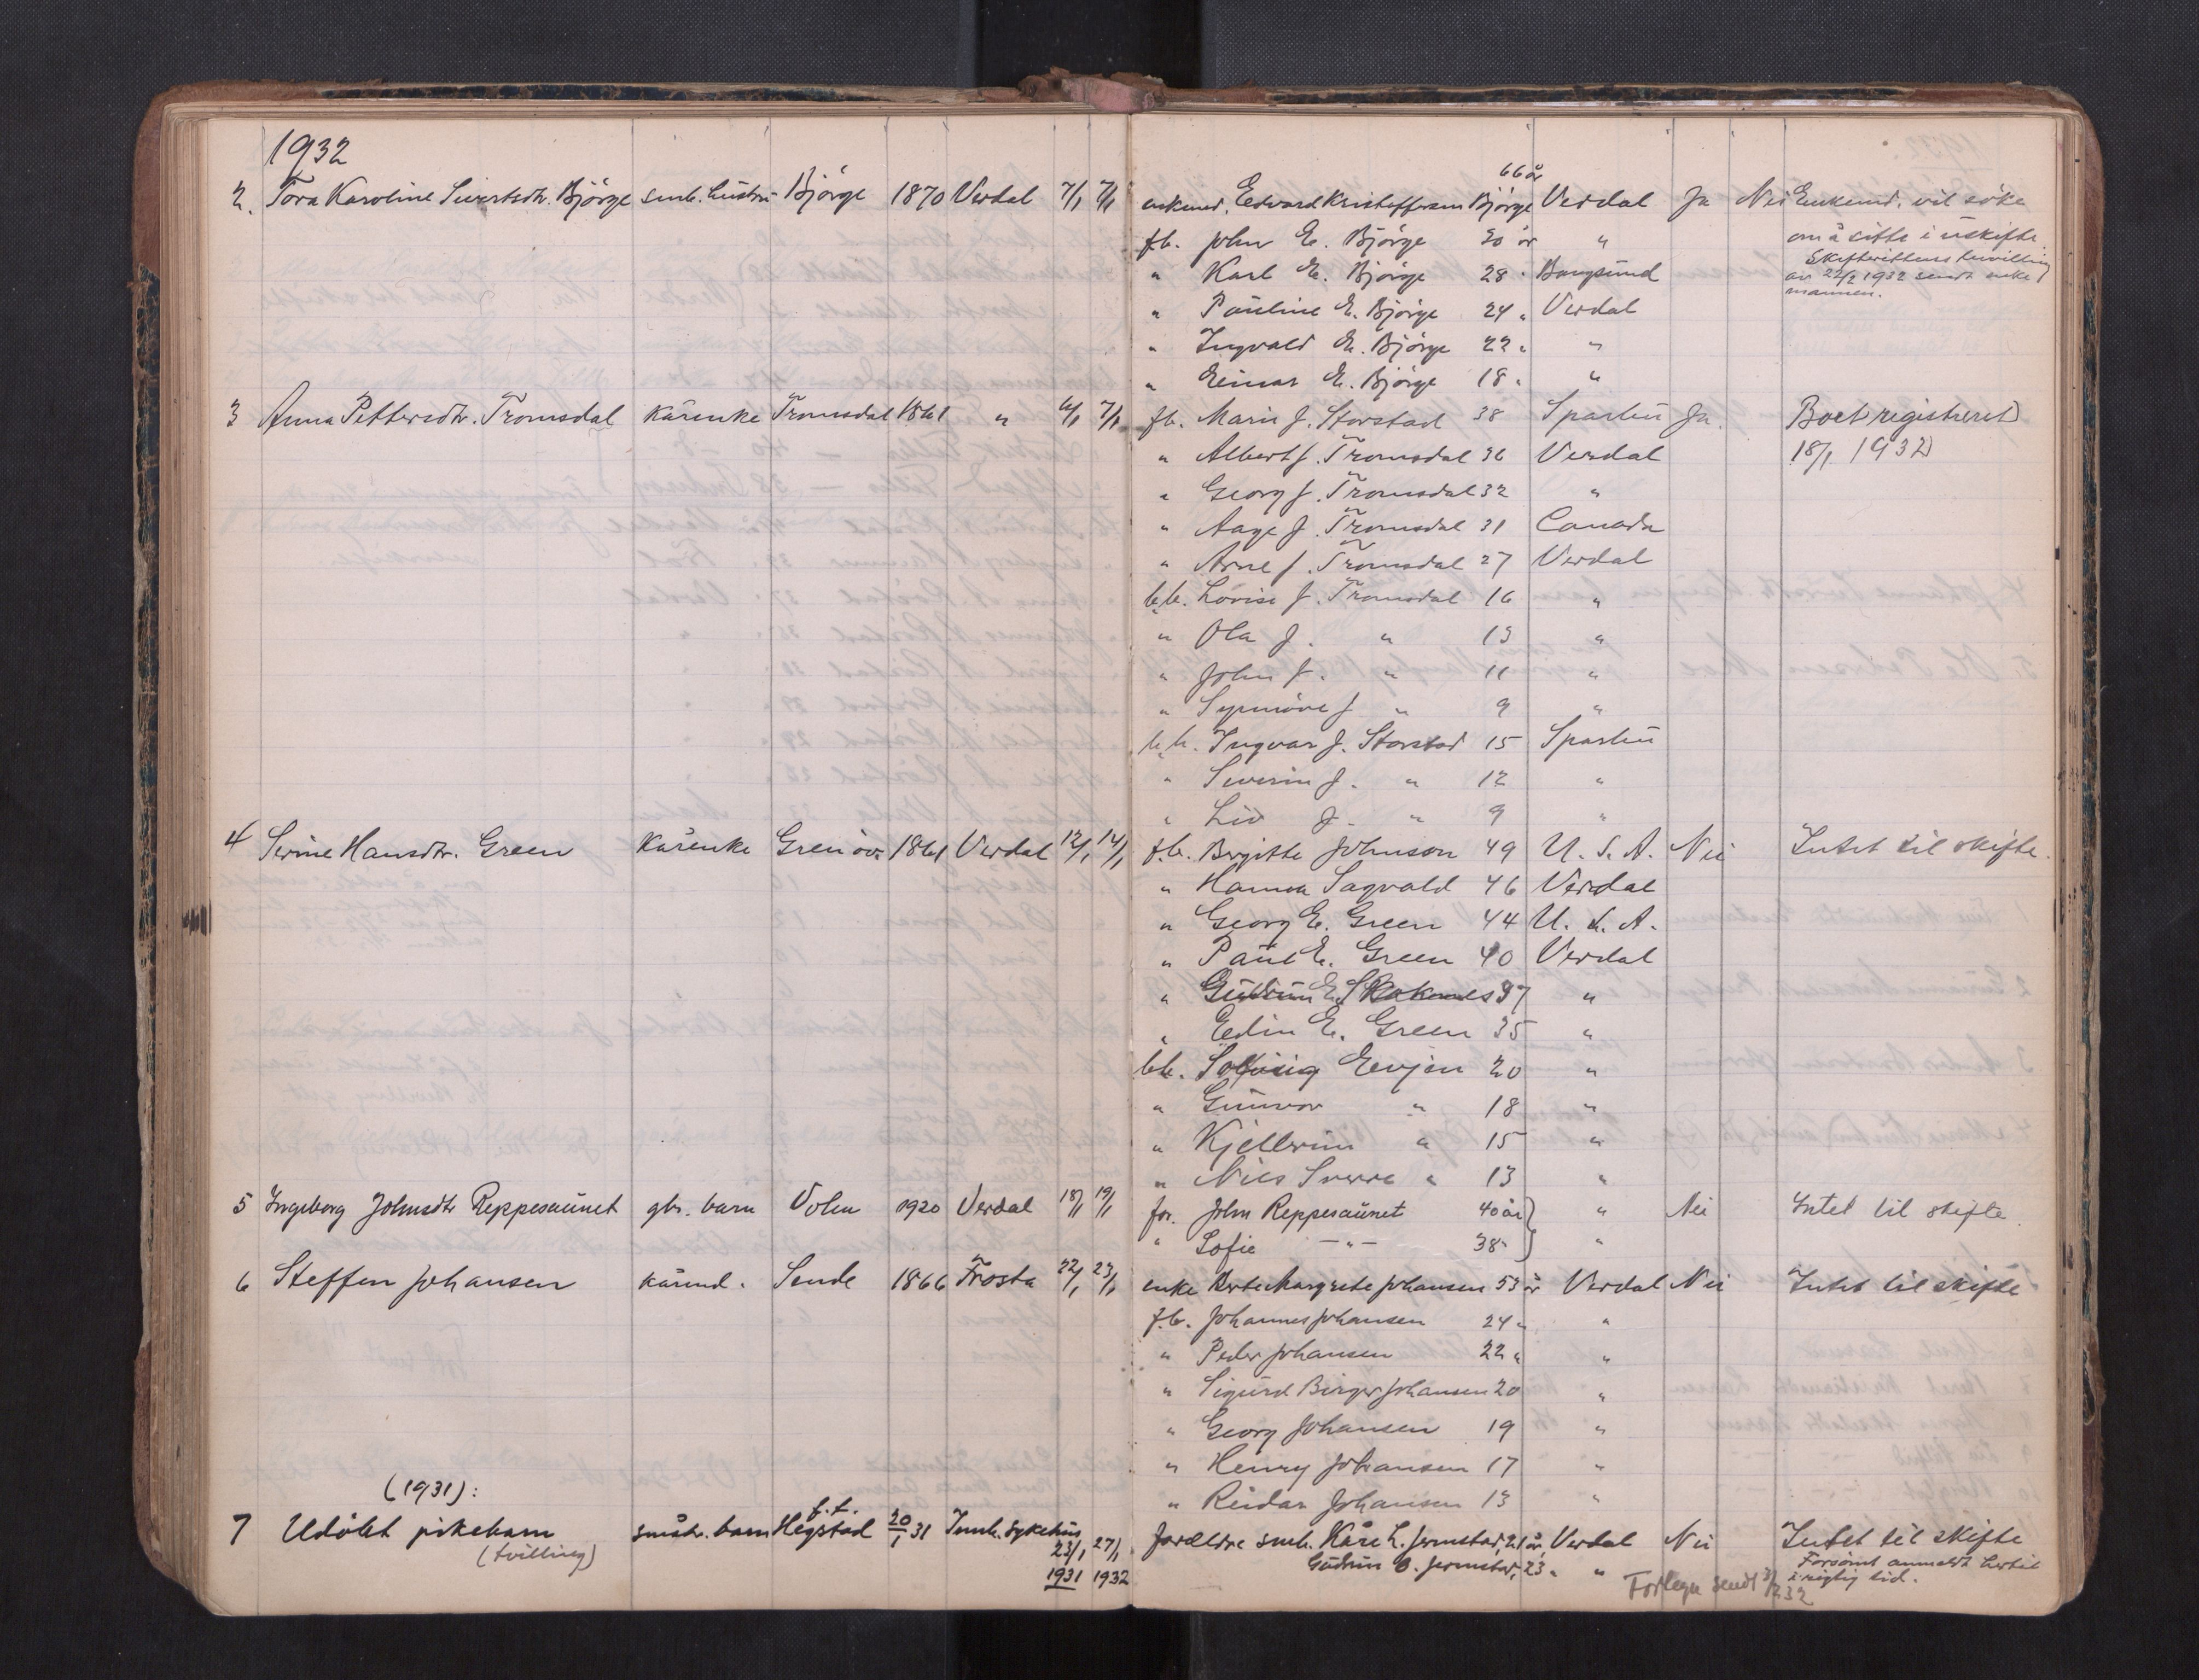 1932
2. Tora Karoline Sivertsdtr. Björge smb. hustru Björge 1870 Verdal 7/1 7/1 enkemd. Edvard Kristoffersen Björge 66 år Verdal Ja Nei Enkemd. vil söke
fb. John E. Björge 30 år " om å sitte i uskifte.
" Karl E. Björge 28 " Bangsund Skifterettens bevilling
av 22/2 1932 sendt enke
mannen.
" Pauline E. Björge 24 " Verdal
" Ingvald E. Björge 22 " "
" Einar E. Björge 18 " "
3 Anna Pettersdtr. Tromsdal kårenke Tromsdal 1861 " 6/1 7/1 fb. Marie J. Storstad 38 Sparbu Ja Boet registreret
" Albert J. Tromsdal 36 Verdal 18/1 1932
" Georg J. Tromsdal 32 "
" Aage J. Tromsdal 31 Canada
" Arne J. Tromsdal 27 Verdal
bb. Lovise J. Tromsdal 16 "
" Ola J. " 13 "
" John J. " 11 "
" Synnöve J " 9 "
bb. Ingvar J. Storstad 15 Sparbu
" Severin J. " 12 "
" Liv J. " 9 "
4 Serine Hansdtr. Green kårenke Green öv. 1861 Verdal 12/1 14/1 fb. Birgitte Johnson 49 U.S.A. Nei Intet til skifte.
" Hanna Sagvald 46 Verdal
" Georg E. Green 44 U.S.A.
" Paul E. Green 40 Verdal
" Gudrun E. 37 "
" Edin E. Green 35 "
bb. Solveig Evjen 20 "
" Gunvor " 18 "
" Kjellrun " 15 "
" Nils Sverre " 13 "
5 Ingeborg Johnsdtr Reppesaunet gbr. barn Volen 1920 Verdal 18/1 19/1 for. John Reppesaunet 40 år " Nei Intet til skifte.
" Sofie -"- 38 " "
6 Steffen Johansen kårmd. Sende 1866 Frosta 22/1 23/1 enke Berte Margrete Johansen 53 år Verdal Nei Intet til skifte
fb. Johannes Johansen 24 " "
" Peder Johansen 22 " "
" Sigurd Birger Johansen 20 "
" Georg Johansen 19 "
" Henry Johansen 17 "
" Reidar Johansen 13 "
(1931):
7 Udöbt pikebarn småbr. barn f.t. Hegstad 20/1 31 Innh. sykehus 23/1 1931 27/1 1932 Forældre smb. Kåre L. Jermstad, 21 år, Verdal Nei Intet til skifte
(tvilling) Gudrun O. Jermstad, 23 " " Forsömt anmeldt hertil
i rigtig tid.
Forlegg sendt 3/2 32